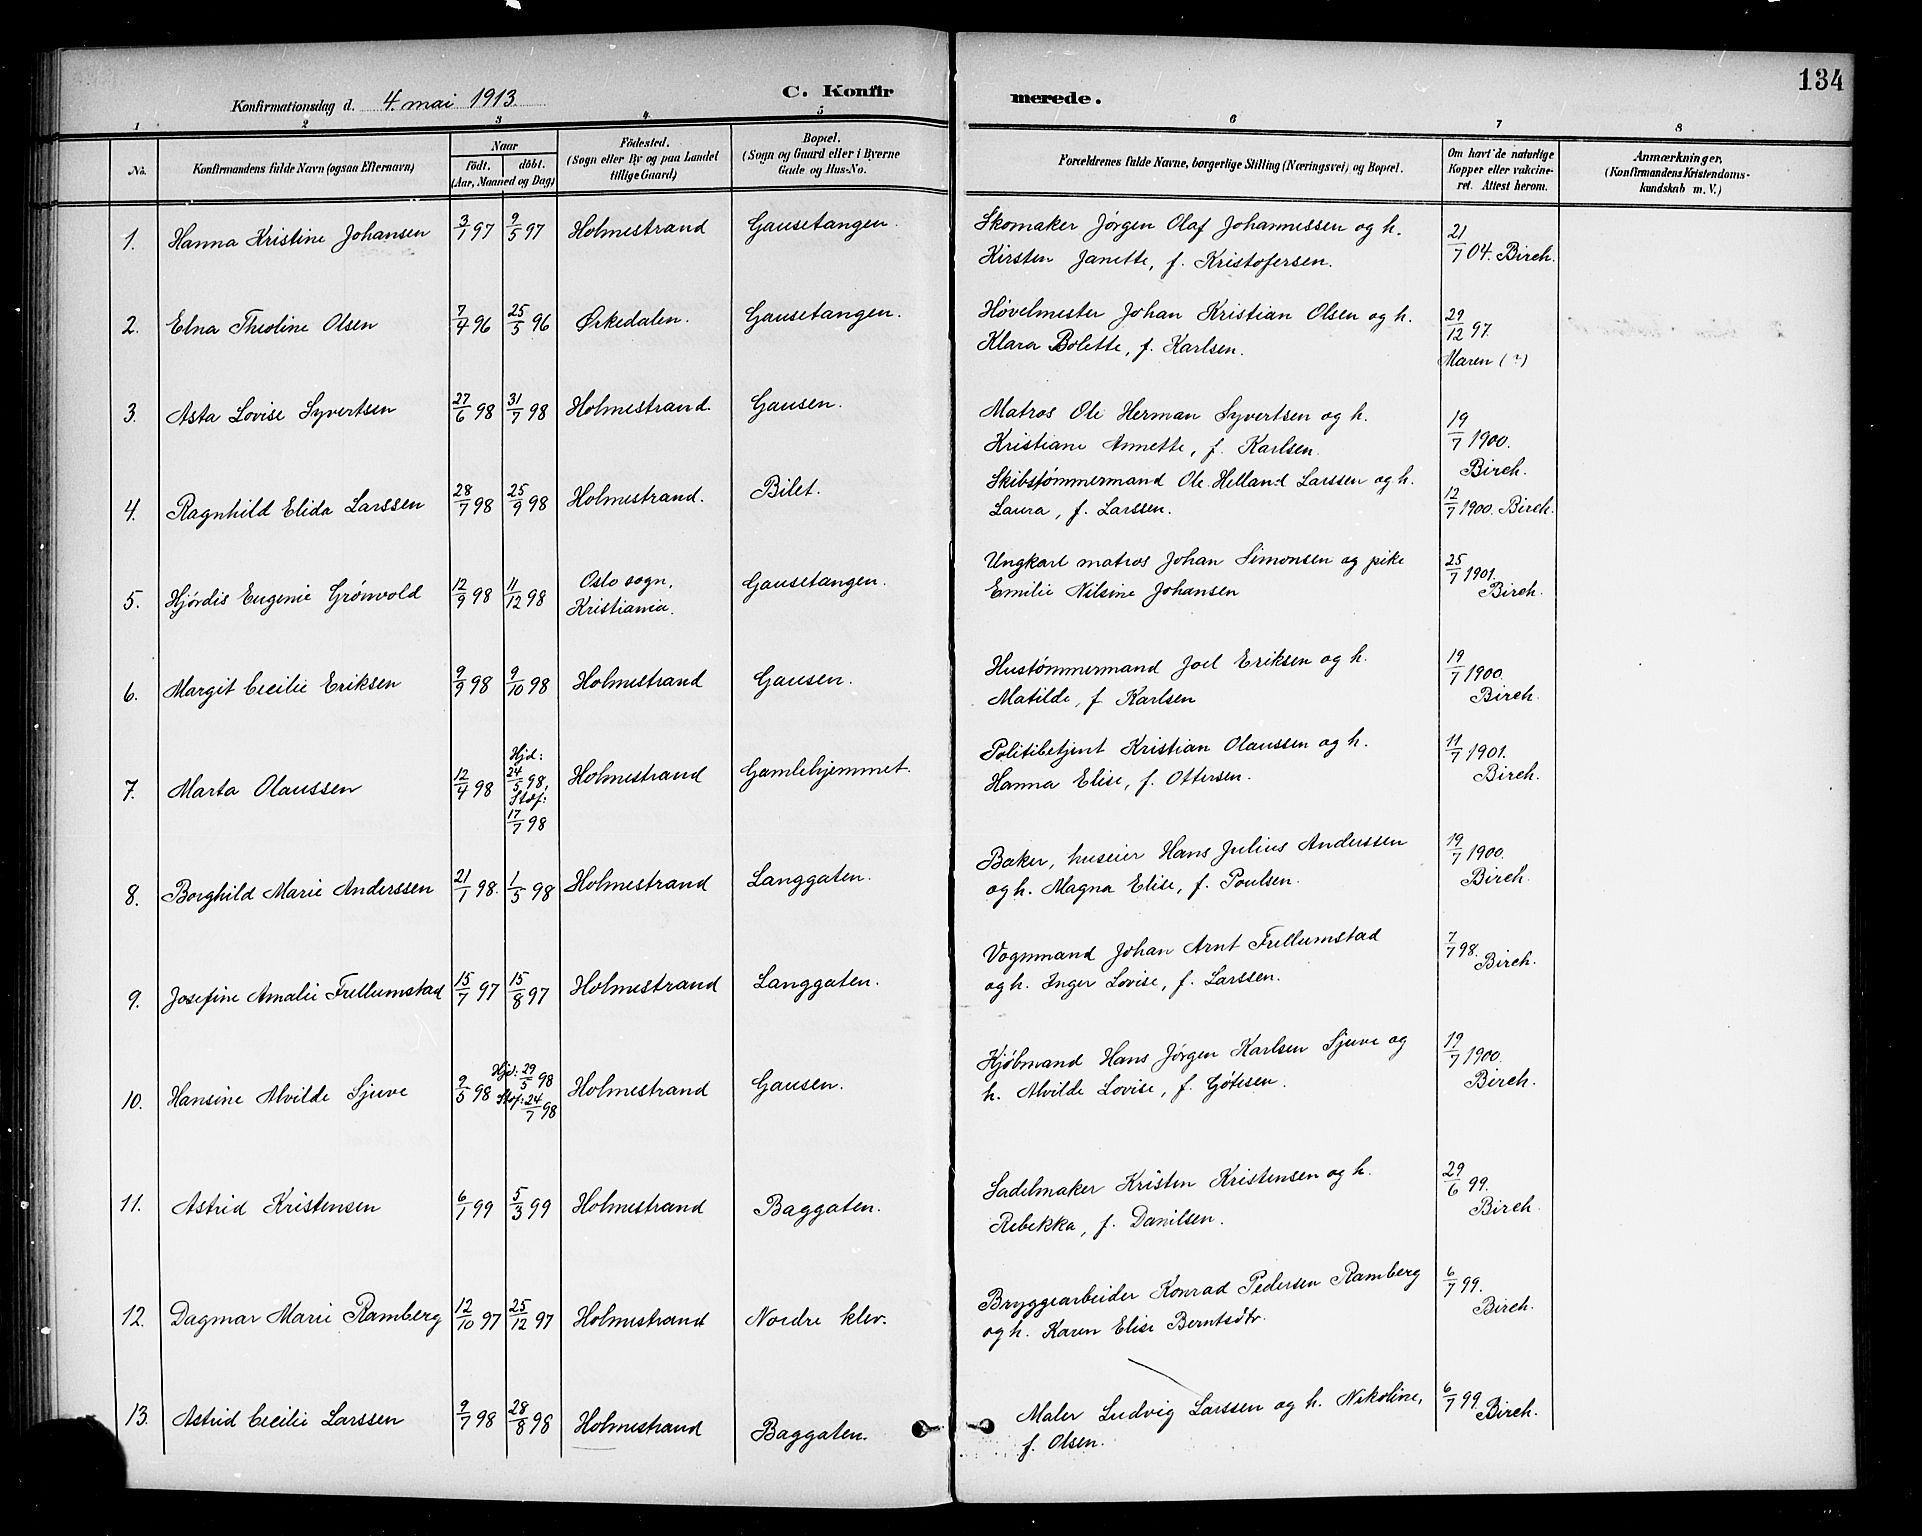 134
Konfirmationsdag d. 4. mai 1913.
C. Konfirmerede.
1 2 3 4 5 6 7 8
No.
Konfirmandens fulde Navn (ogsaa Efternavn)
Naar
födt. döbt.
(Aar, Maaned og Dag)
Födested.
(Sogn eller By og paa Landet
tillige Gaard)
Bopæl.
(Sogn og Gaard eller i Byerne
Gade og Hus-No.
Forældrenes fulde Navne, borgerlige Stilling (Næringsvei) og Bopæl.
Om havt de naturlige
Kopper eller vakcine-
ret. Attest herom.
Anmærkninger,
(Konfirmandens Kristendoms-
kundskab m. V.)
1. Hanna Kristine Johansen 3/1 97 9/5 97 Holmestrand Gausetangen. Skomaker Jørgen Olaf Johannessen og h. 21/7 04. Birch.
Kirsten Janette, f. Kristofersen.
2. Elna Theoline Olsen 7/4 96 25/5 96 Ørkedalen. Gausetangen. Høvelmester Johan Kristian Olsen og h. 29/12 97.
Klara Bolette, f. Karlsen. Maren (?)
3. Asta Lovise Syvertsen 27/6 98 31/7 98 Holmestrand. Gausen. Matros Ole Herman Syvertsen og h. 19/7 1900.
Kristiane Annette, f. Karlsen. Birch.
4. Ragnhild Elida Larssen 28/7 98 25/9 98 Holmestrand. Bilet. Skibstømmermand Ole Helland Larssen og h. 12/7 1900. Birch.
Laura, f. Larssen.
5. Hjørdis Eugenie Grønvold 12/9 98 11/12 98 Oslo sogn, Gausetangen. Ungkarl matros Johan Simonsen og pike 25/7 1901.
Kristiania. Emilie Nilsine Johansen Birch.
6. Margit Cecilie Eriksen 9/9 98 9/10 98 Holmestrand Gausen. Hustømmermand Joel Eriksen og h. 19/7 1900.
Matilde, f. Karlsen Birch.
7. Marta Olaussen 12/4 98 Hjd: 24/5 98, Stæf: 17/7 98 Holmestrand Gamlehjemmet. Politibetjent Kristian Olaussen og h. 11/7 1901.
Hanna Elise, f. Ottersen. Birch.
8. Borghild Marie Anderssen 21/1 98. 1/5 98 Holmestrand Langgaten. Baker, huseier Hans Julius Anderssen 19/7 1900.
og h. Magna Elise, f. Poulsen. Birch.
9. Josefine Amalie Frellumstad 15/7 97 15/8 97 Holmestrand Langgaten. Vognmand Johan Arnt Frellumstad 7/7 98.
og h. Inger Lovise, f. Larssen. Birch.
10. Hansine Alvilde Sjuve 9/5 98 Hjd: 29/5 98 Stæf: 24/7 98 Holmestrand Gausen. Kjøbmand Hans Jørgen Karlsen Sjuve og 19/7 1900.
h. Alvilde Lovise, f. Gøtesen. Birch.
11. Astrid Kristensen 6/1 99 5/3 99 Holmestrand Baggaten. Sadelmaker Kristen Kristensen og h. 29/6 99.
Rebekka, f. Danilsen. Birch.
12. Dagmar Marie Ramberg 12/10 97 25/12 97 Holmestrand Nordre klev. Bryggearbeider Konrad Pedersen Ramberg 6/7 99.
og h. Karen Elise Berntsdtr. Birch.
13. Astrid Cecilie Larssen 9/7 98 28/8 98 Holmestrand Baggaten. Maler Ludvig Larssen og h. Nikoline, 6/7 99. Birch.
f. Olsen.